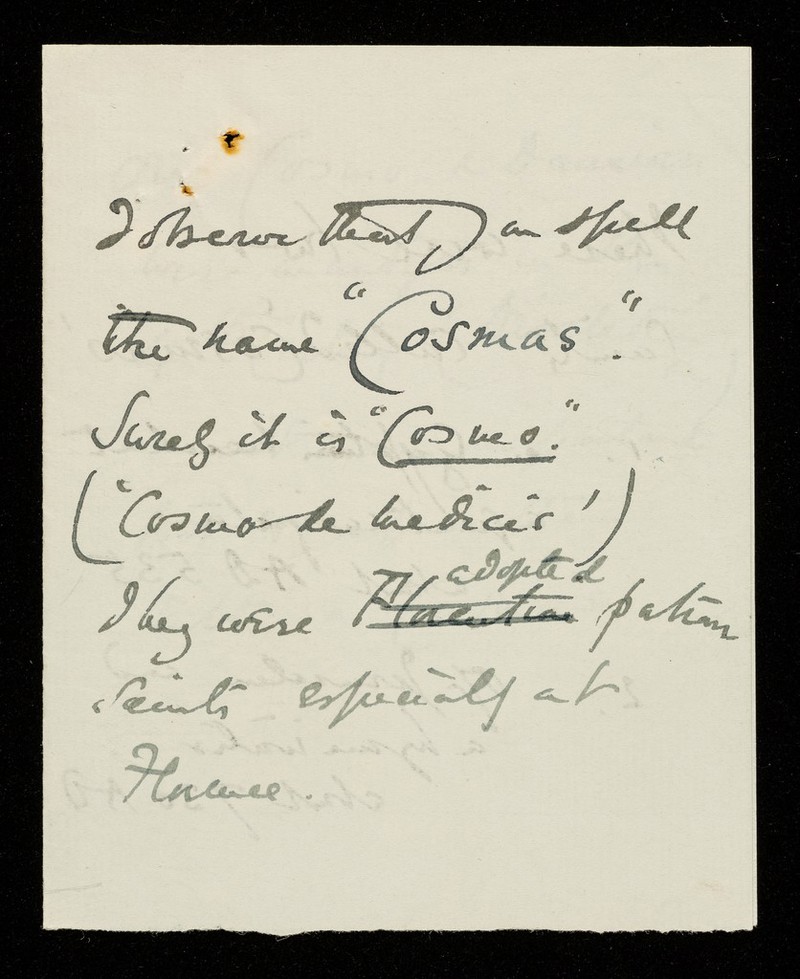 I observe that I am spell
the name "Cosmas".
Surely it is "Cosmo."
("Cosmo de medicis')
They were Florentine adopted patron
saints especially at
Florence.